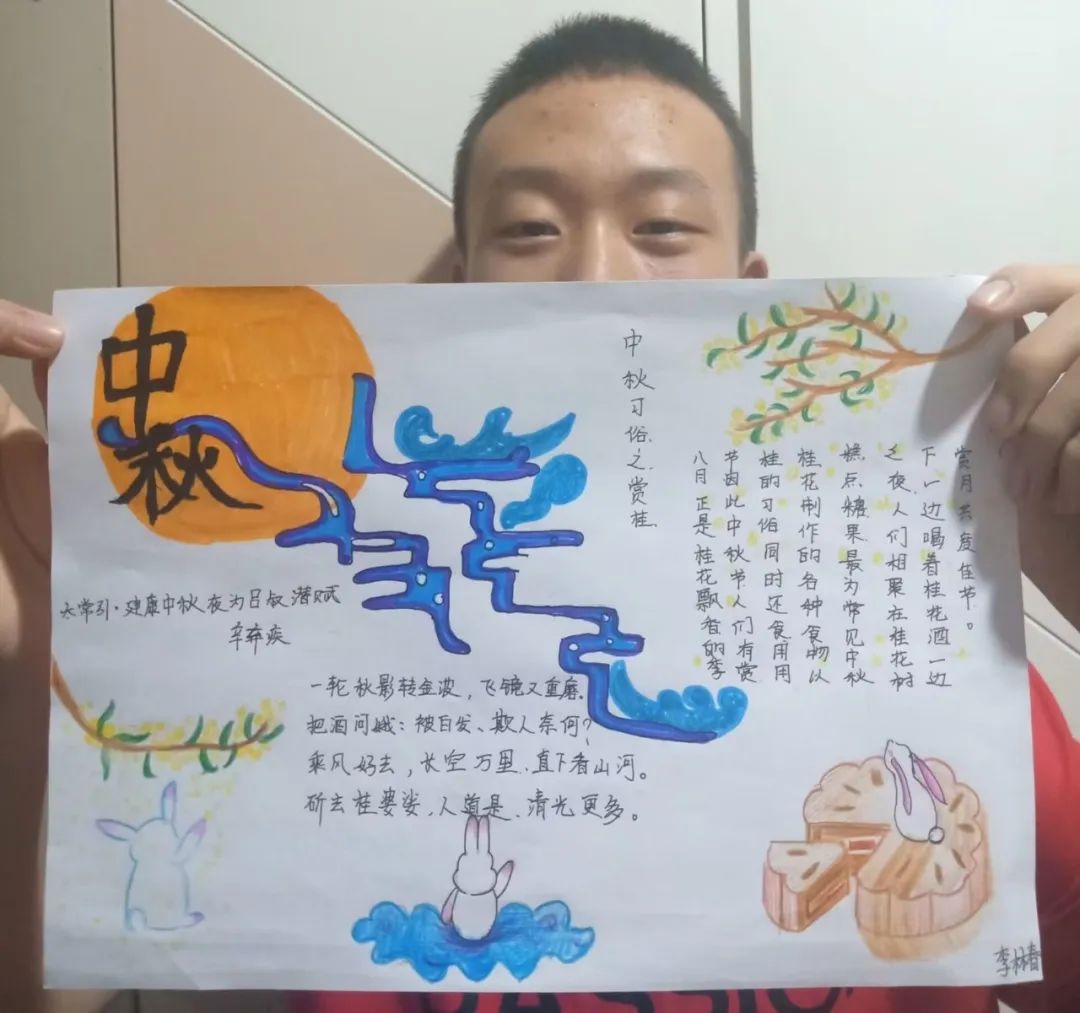 中
秋
太常引·建康中秋夜为吕叔潜赋
辛弃疾
一轮秋影转金波，飞镜又重磨.
把酒问娥：被白发、欺人奈何？
乘风好去，长空万里.直下看山河。
斫去桂婆娑，人道是.清光更多。
中秋习俗.之.赏桂
八月正是桂花飘香的季
节因此中秋节人们有赏
桂的习俗同时还食用用
桂花制作的各种食物以
糕点.糖果最为常见中秋
之夜.人们相聚在桂花树
下.一边喝着桂花酒一边
赏月共度佳节。